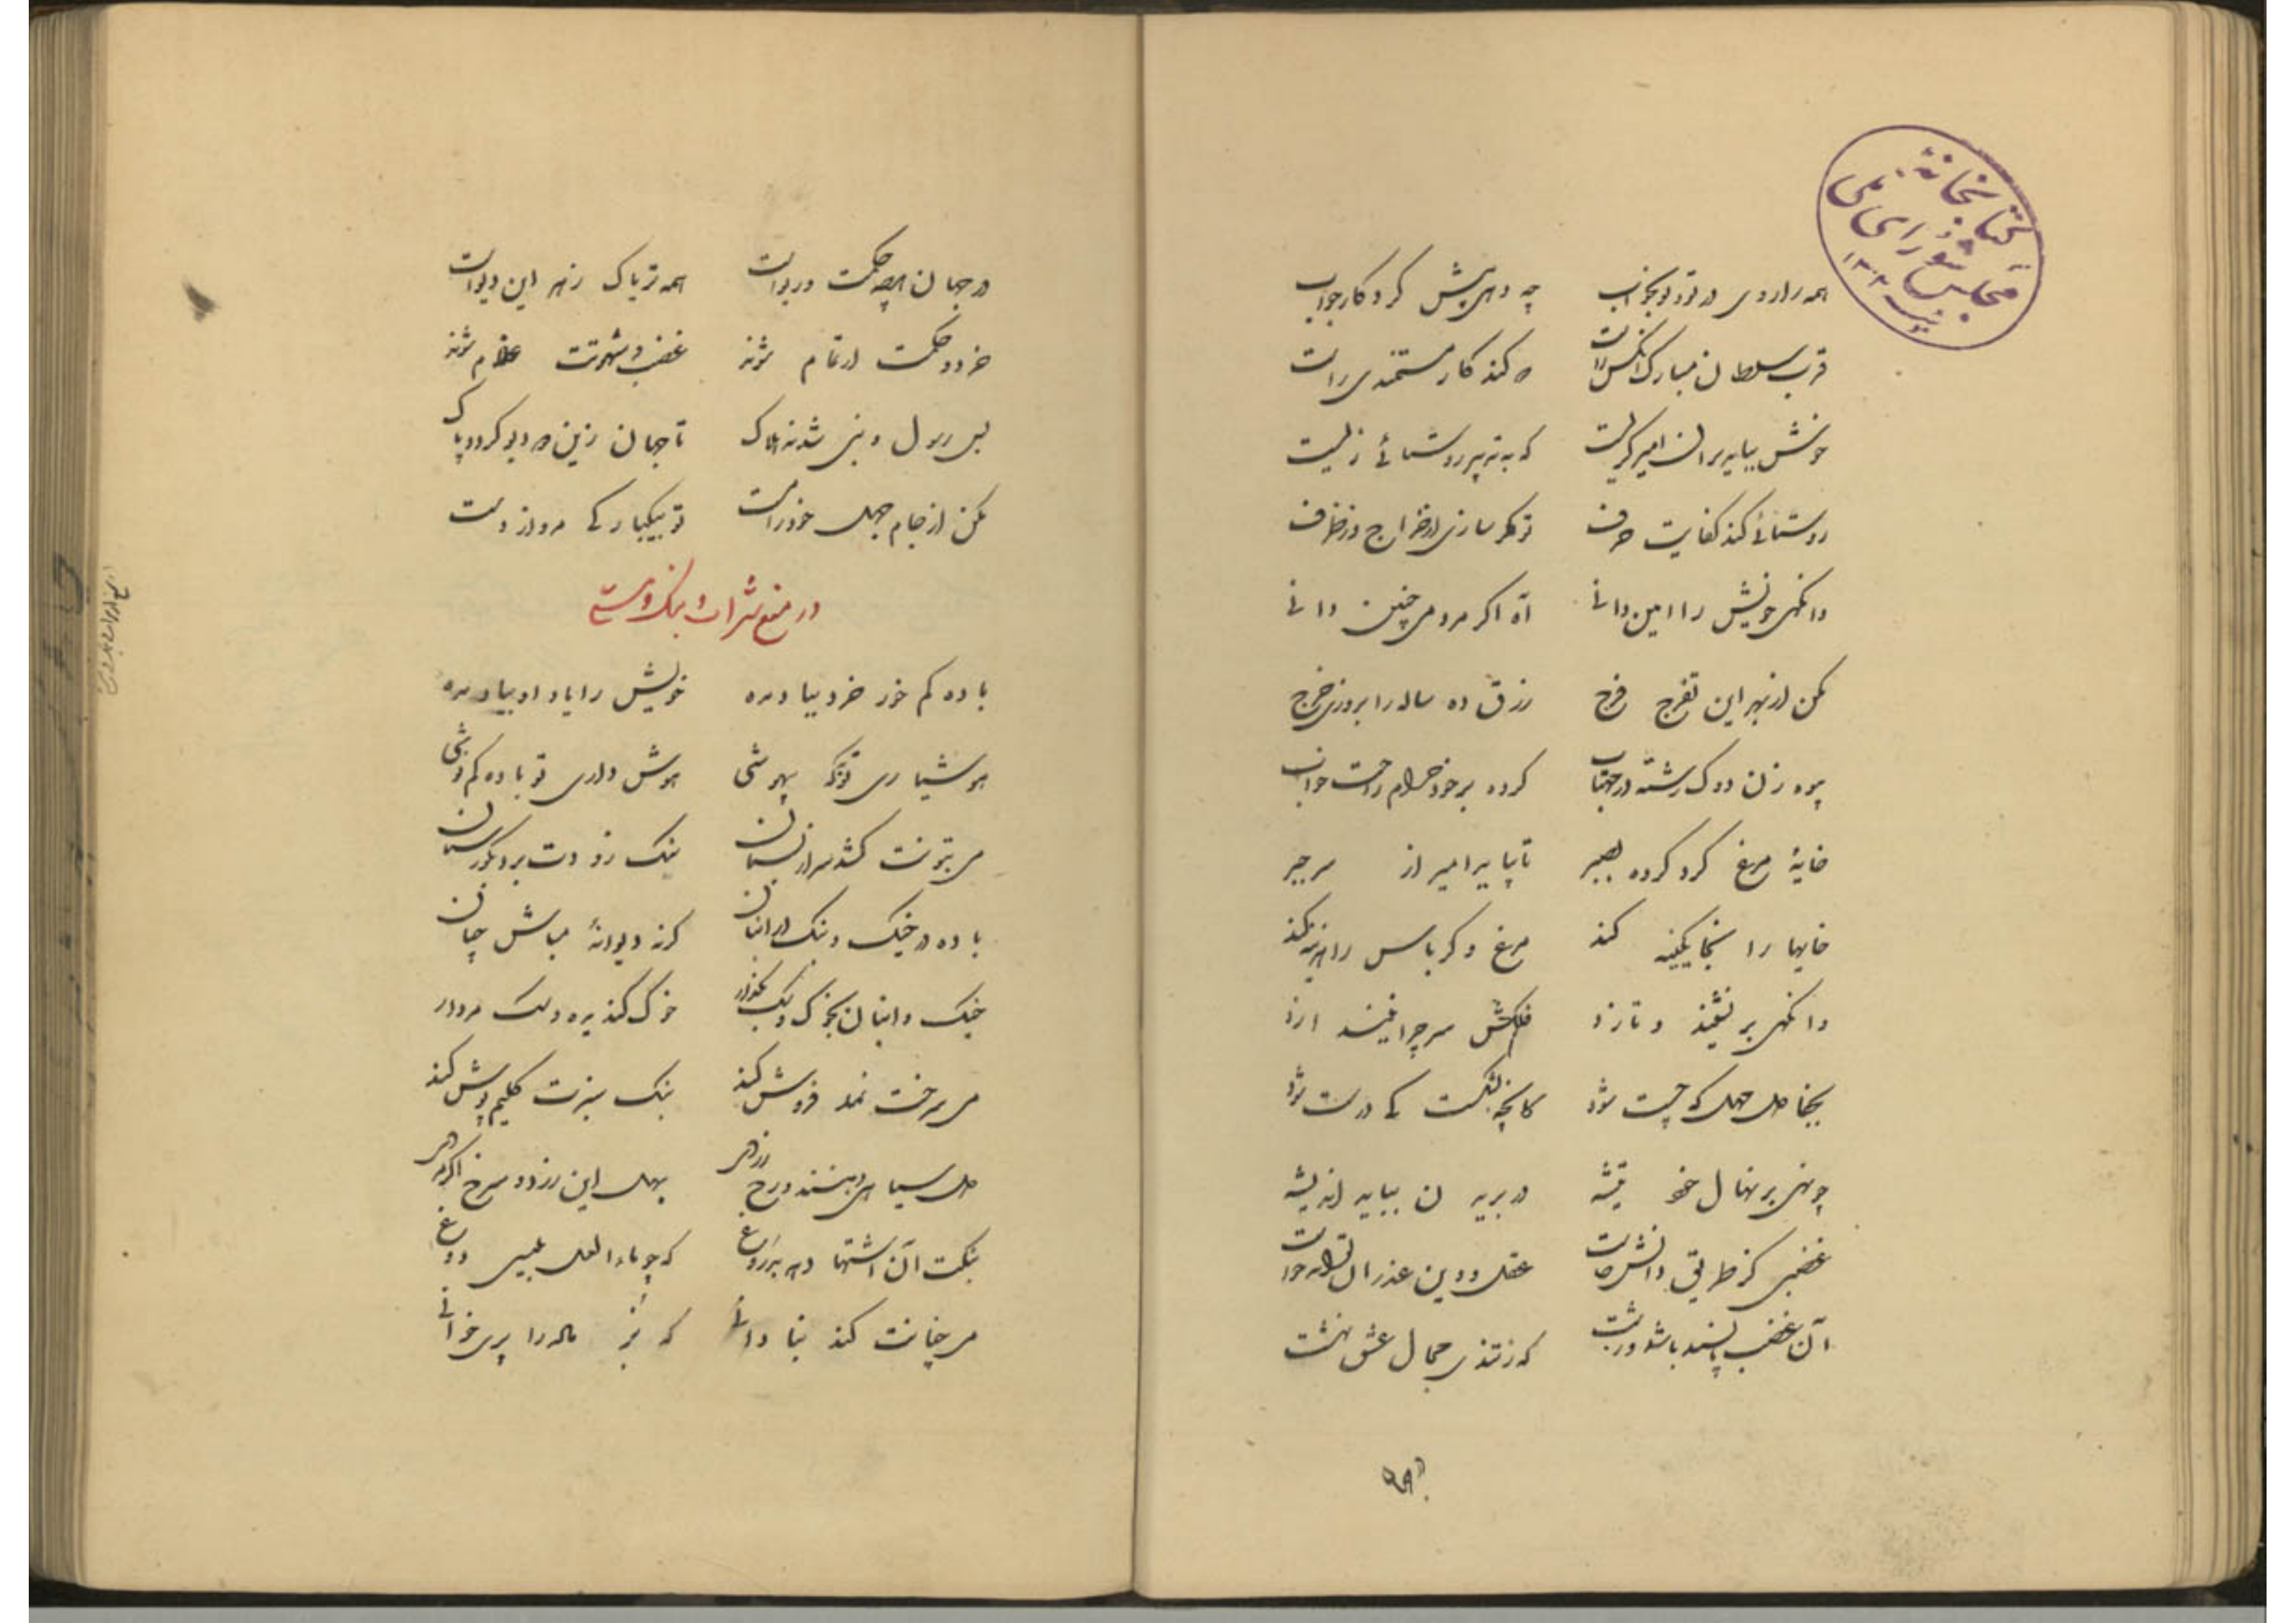 کتابخانهٔ
مجلس شورای ملی
همه را روی در تو و تو بخواب چه دهی پیش کردگار جواب
قرب سلطان مبارک آنکس راست که کند کار مستمندی راست
خونش بباید بر آن امیر گریست که به تدبیر روستائی زیست
روستائی کند کفایت حرف تو کمر سازی از خراج و ز ظرف
وانگهی خویش را امین دانی آه اگر مردمی چنین دانی
مکن از بهر این تفرج فرج رزق ده ساله را بروزی خرج
بیوه زن دوک رشته در مهتاب کرده بر خود حرام راحت خواب
خایهٔ مرغ گرد کرده بصبر تا بیاید امیر از سر جبر
خایها را بخایگینه کند مرغ و کرباس را هزینه کند
وانگهی بر نشیند و تازد فلکش سر چرا نیندازد
بچنا جهل که چست شود کانچه بشکست کی درست شود
چو نهی بر نهال خود تیشه در بریدن بباید اندیشه
غضبی کز طریق دانش خاست عقل و دین عذر آن تواند خواست
آن غضب ناپسند باشد و زشت که ز تندی مجال عشق نهشت
در جهان هر چه حکمت و دیوانست همه تریاک زهر این دیوانست
خرد و حکمت ار تمام شوند غضب و شهوتت غلام شوند
بس رسول و نبی شدند هلاک تا جهان زین دو دیو گردد پاک
مکن از جام جهل خود را مست تو بیکبارگی مرو از دست
در منع شراب و بنگ و مستی
باده کم خور خرد بباد مده خویش را یاد او بباد مده
هوشیاری تو ترک بیهوشی هوش داری تو باده کم نوشی
می بتونت کشد سر از نسیان بنگ زودت برد بگورستان
باده در خیک و بنگ در انبان گرنه دیوانهٔ مباش چنان
خیک و انبان بخوک و سگ بگذار خوک گنده به و سگ مردار
می سرخت نمد فروش کند بنگ سبزت گلیم پوش کند
دل سیاهی دهند و رخ زردی بهل این زرد و سرخ اگر مردی
بنگت آن اشتها دهد بدروغ که چو ماء العسل بلیسی دوغ
می چنانت کند بنادانی که بز ماده را پری خوانی